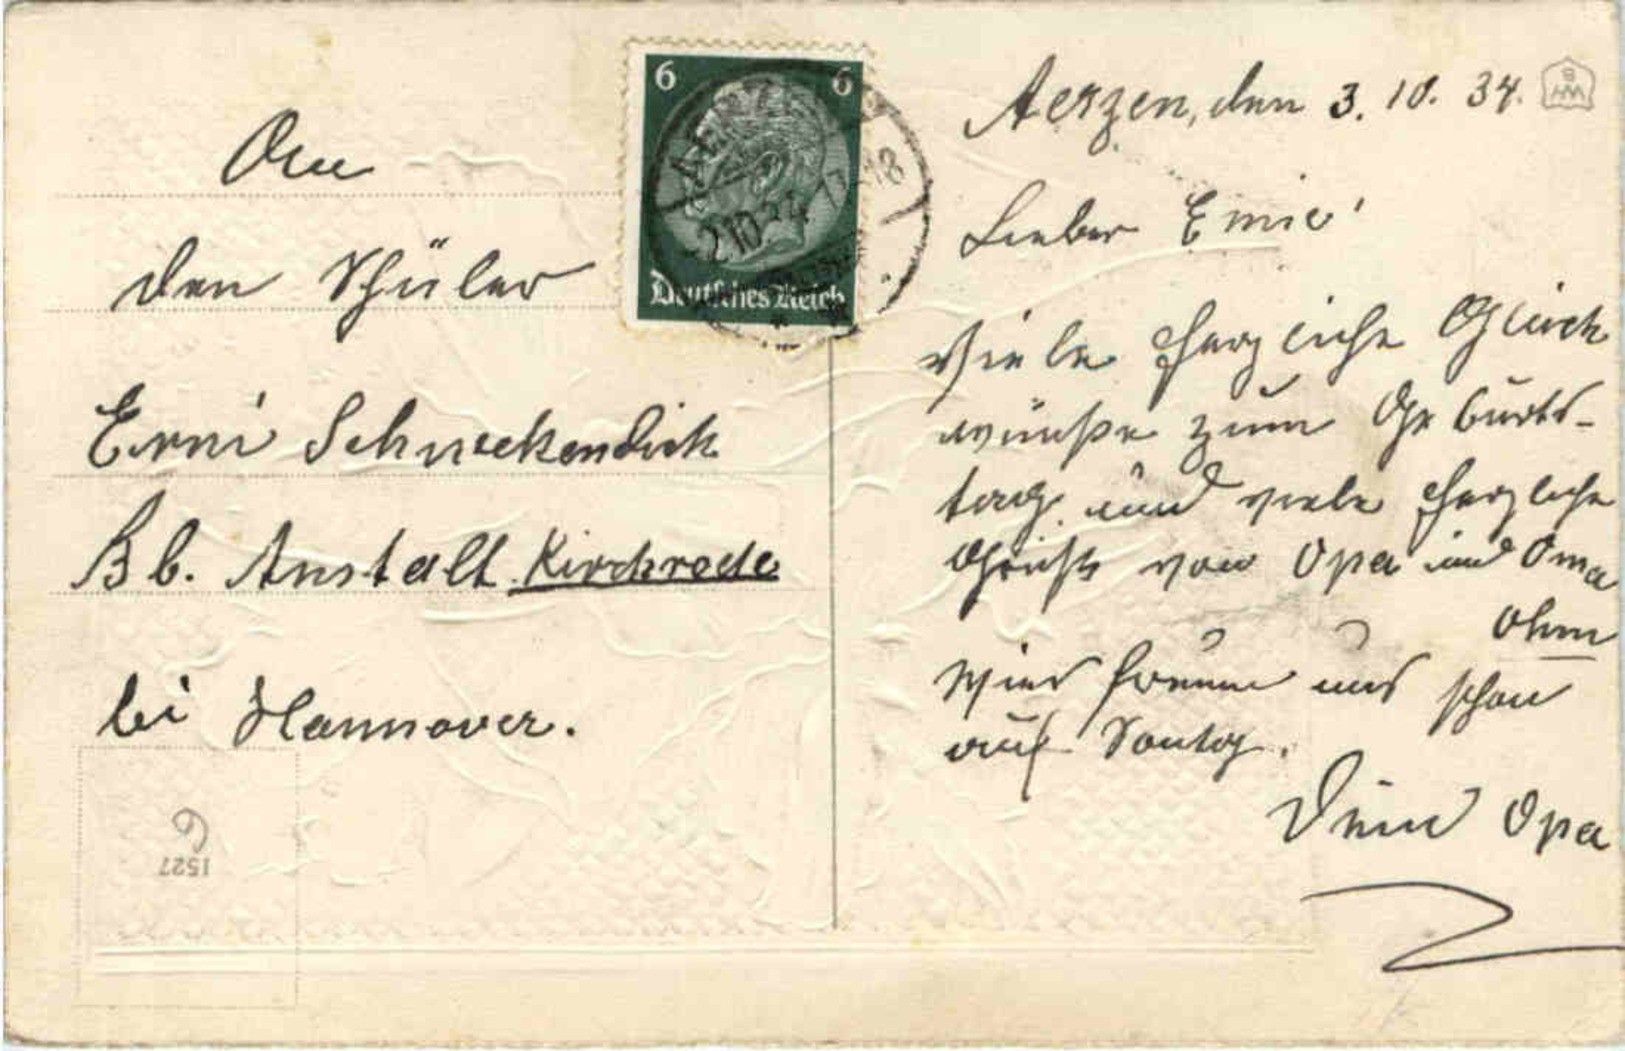 An
den Schüler
Erni Schneckendick
Bb. Anstalt Kirchrode
bei Hannover.
6 6
Deutsches Reich
2.10.34 17-18
6
1527
Aerzen, den 3. 10. 34.
Lieber Erni!
Viele herzliche Glück
wünsche zum Geburts-
tag und viele herzliche
Grüße von Opa und Oma
Ohm
Wier freuen uns schon
auf Sontag.
Dein Opa